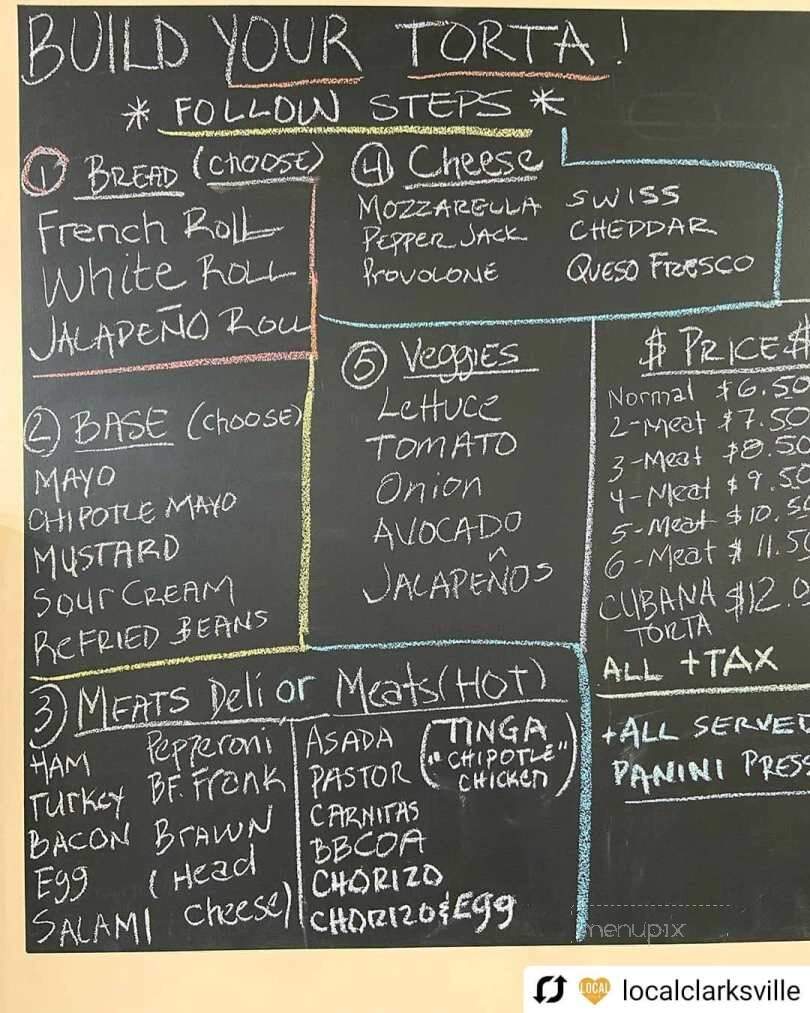 BUILD YOUR TORTA!
* FOLLOW STEPS *
1 BREAD (CHOOSE)
French Roll
White Roll
JALAPEÑO ROLL
2 BASE (CHOOSE)
MAYO
CHIPOTLE MAYO
MUSTARD
SOUR CREAM
REFRIED BEANS
3) MEATS Deli or Meats (HOT)
HAM
TURKEY
BACON
Egg
SALAMI
Pepperoni
BF. Frank
BRAWN
(Head
cheese)
ASADA
PASTOR
CARNITAS
BBCOA
CHORIZO
CHORIZO & Egg
(TINGA
"CHIPOTLE"
CHICKEN)
4 Cheese
MOZZARELLA
PEPPER JACK
PROVOLONE
SWISS
CHEDDAR
QUESO FRESCO
5 Veggies
LETTUCE
TOMATO
Onion
AVOCADO
JALAPEÑOS
$ PRICE $
Normal $6.50
2-Meat $7.50
3-Meat $8.50
4-Meat $9.50
5-Meat $10.50
6-Meat $11.50
CUBANA $12.0
TORTA
ALL +TAX
+ALL SERVED
PANINI PRESS
menupix
LOCAL
localclarksville